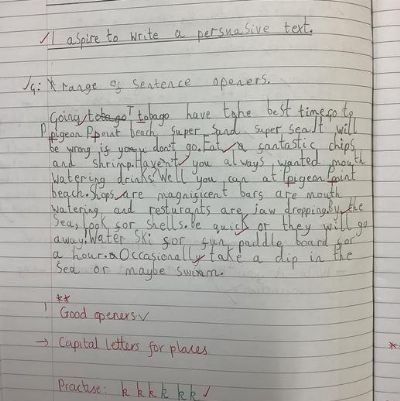 I aspire to write a persuasive text.
JG: A range of sentence openers.
Going to tobago Tobago have tohe best time go to
pigeon Ppoint beach, super sand super sea It will
be wrong if you don't go. Eat a fantastic chips
and shrimp. Haven't you always wanted mouth
watering drinks Well you can at Ppigeon Point
beach. Shops are magnigicent bars are mouth
watering and resturants are jaw dropping. By the
Sea, look for shells. Be quick or they will go
away. Water ski for fun paddle board for
a hour. Occasionally take a dip in the
Sea or maybe swimm.
**
Good openers ✓
→ Capital letters for places
Practise: k k k k k k ✓